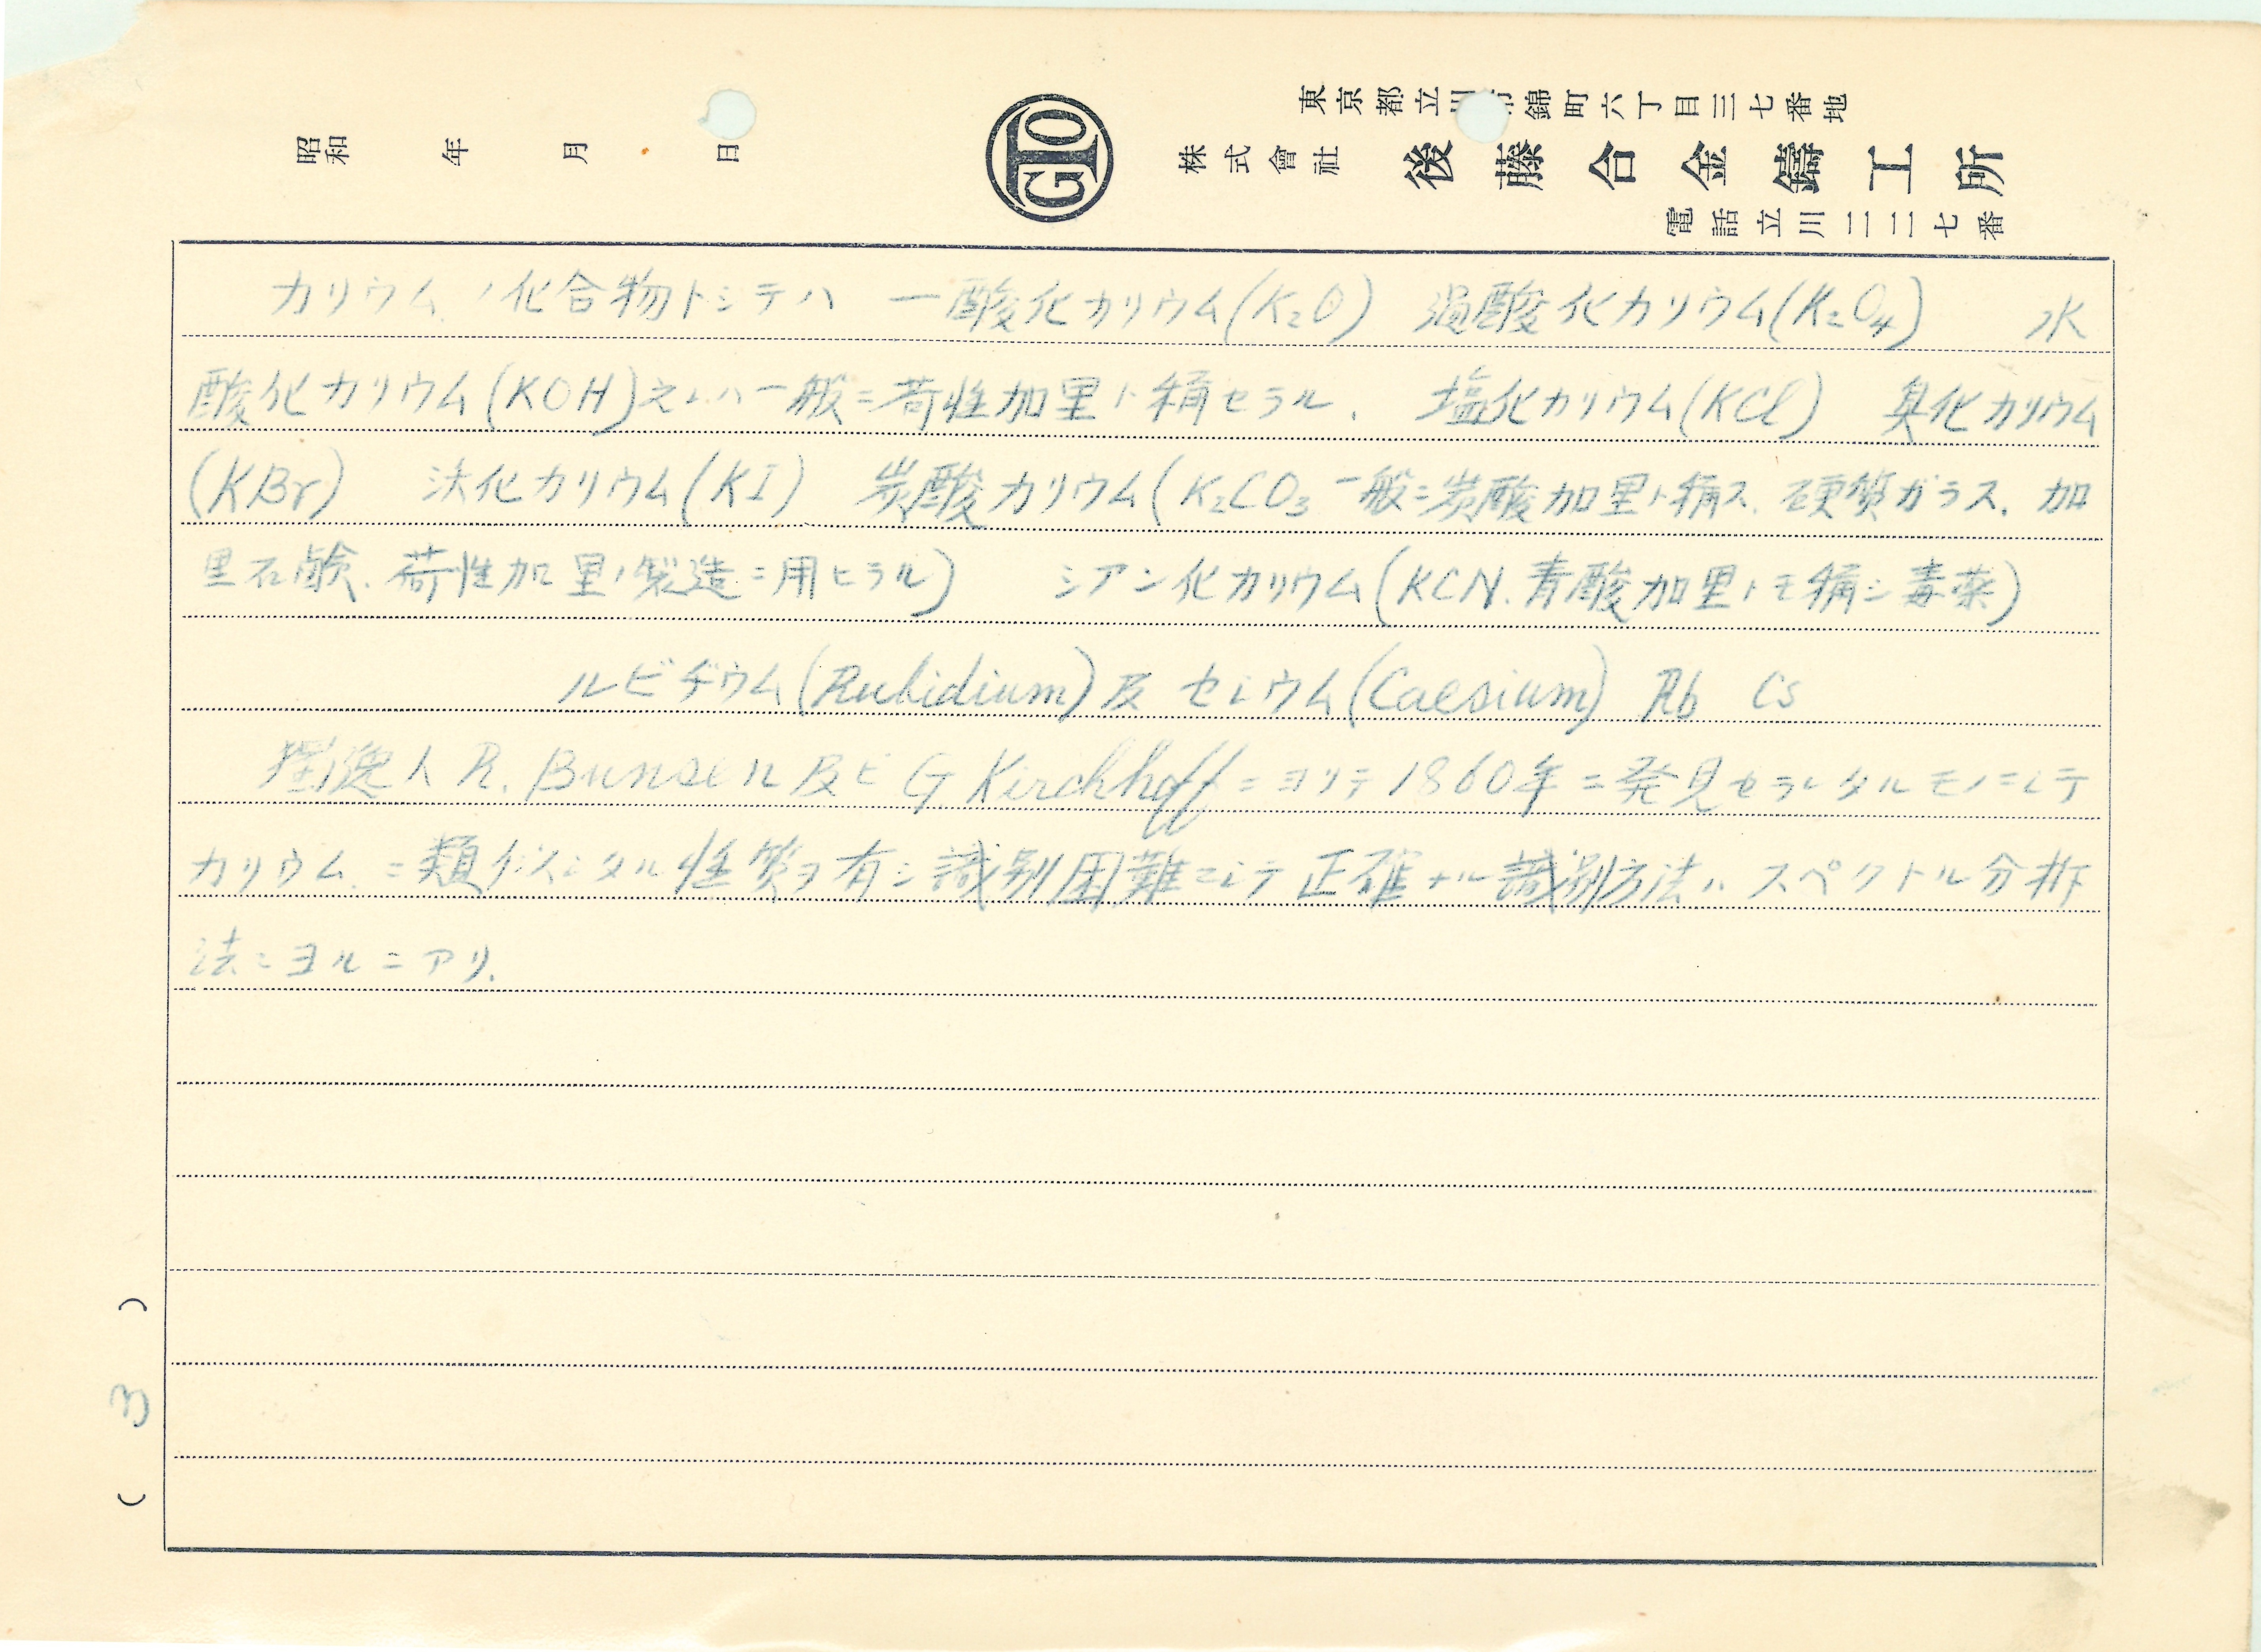 東京都立川市錦町六丁目三七番地
株式會社 後藤合金鑄工所
電話立川二二七番
昭和 年 月 日
GTO
カリウムノ化合物トシテハ 一酸化カリウム(K₂O) 過酸化カリウム(K₂O₄) 水
酸化カリウム(KOH)之レハ一般ニ苛性加里ト稱セラル、 塩化カリウム(KCl) 臭化カリウム
(KBr) 沃化カリウム(KI) 炭酸カリウム(K₂CO₃ 一般ニ炭酸加里ト稱ス、硬質ガラス、加
里石鹸、苛性加里ノ製造ニ用ヒラル) シアン化カリウム(KCN、青酸加里トモ稱シ毒薬)
ルビヂウム(Rubidium)及セシウム(Caesium) Rb Cs
獨逸人R. Bunsen及ビG Kirchhoffニヨリテ1860年ニ発見セラレタルモノニシテ
カリウムニ類似シタル性質ヲ有シ識別困難ニシテ正確ナル識別方法ハスペクトル分析
法ニヨルニアリ、
( 3 )